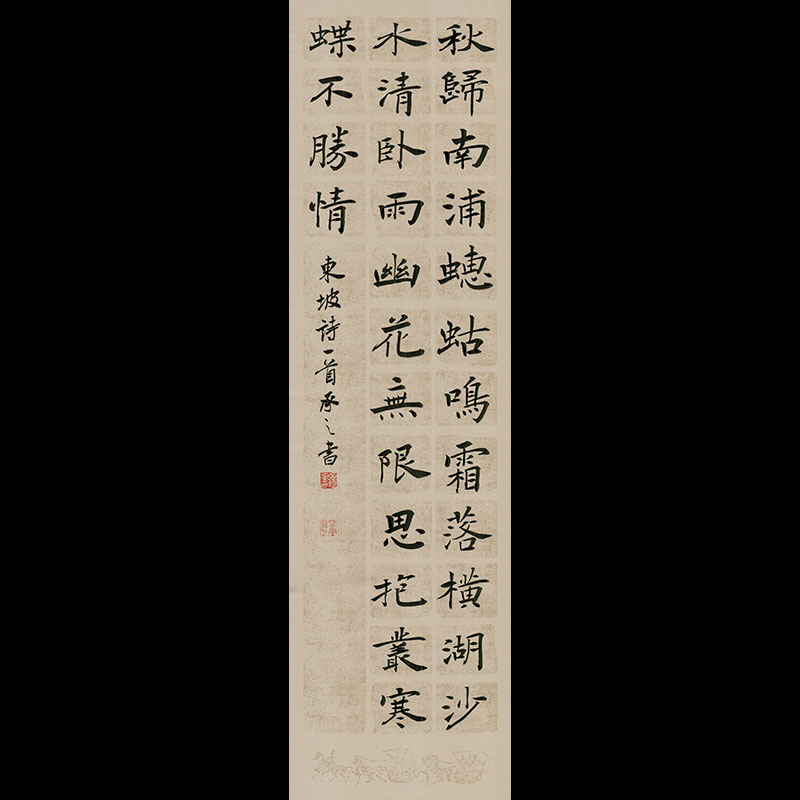 秋歸南浦蟪蛄鳴霜落橫湖沙
水清臥雨幽花無限思抱叢寒
蝶不勝情
東坡詩一首承之書